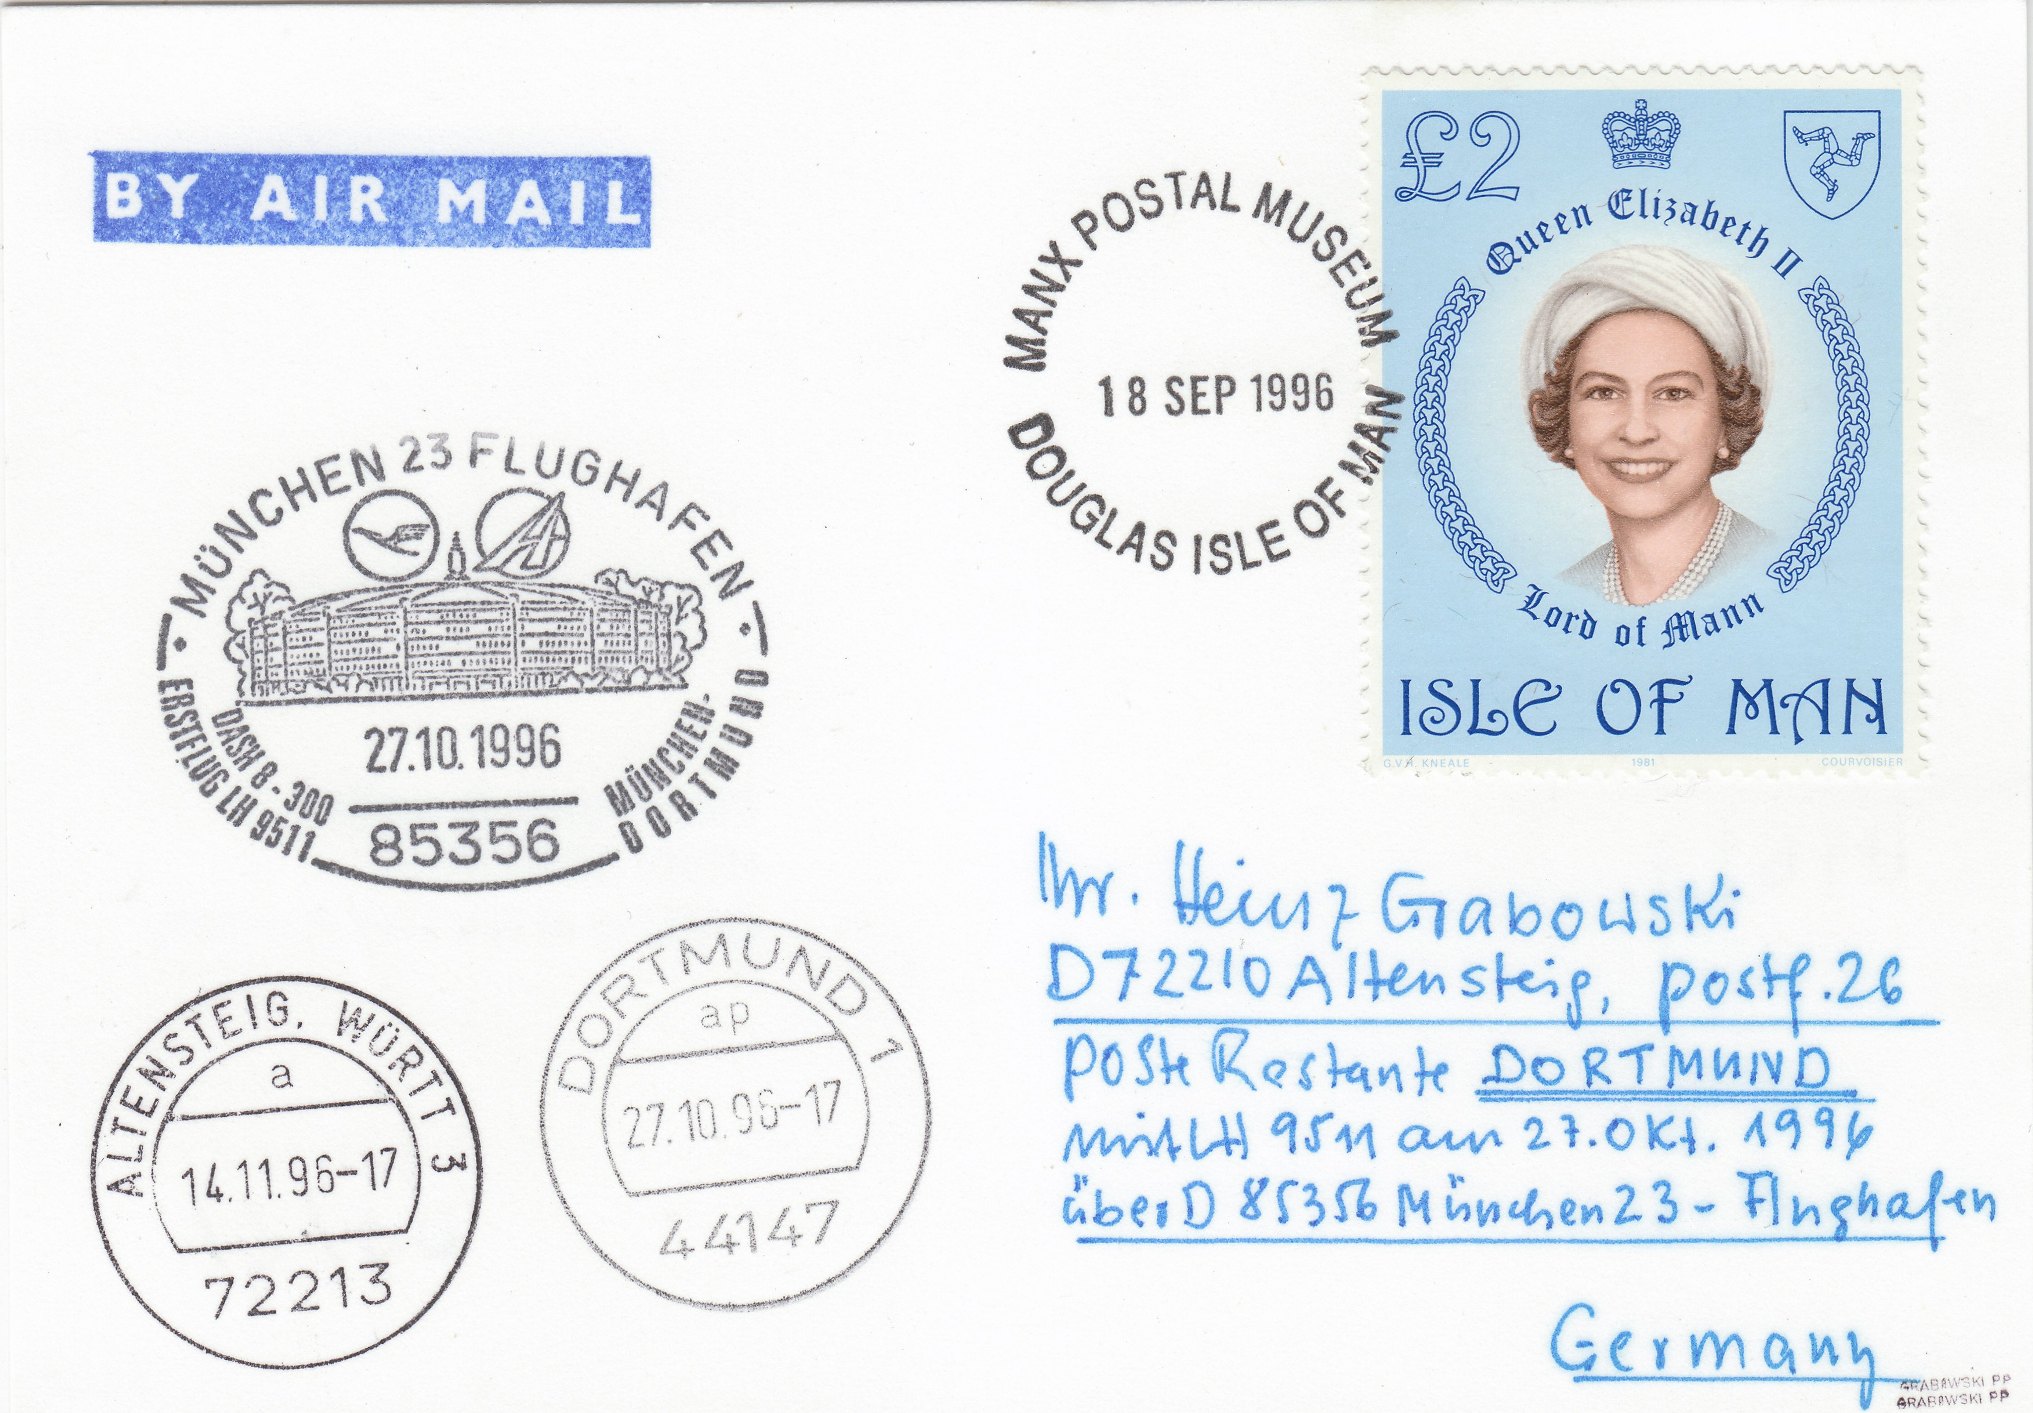 BY AIR MAIL
MANX POSTAL MUSEUM
18 SEP 1996
DOUGLAS ISLE OF MAN
£2
Queen Elizabeth II
Lord of Mann
ISLE OF MAN
G.V.H. KNEALE 1981 COURVOISIER
MÜNCHEN 23 FLUGHAFEN
27.10.1996
DASH 8-300
ERSTFLUG LH 9511
MÜNCHEN-
DORTMUND
85356
DORTMUND 1
ap
27.10.96-17
44147
ALTENSTEIG, WÜRTT 3
a
14.11.96-17
72213
Hr. Heinz Grabowski
D72210 Altensteig, Postf. 26
Poste Restante DORTMUND
mit LH 9511 am 27. Okt. 1996
über D 85356 München 23 - Flughafen
Germany
GRABOWSKI PP
GRABOWSKI PP